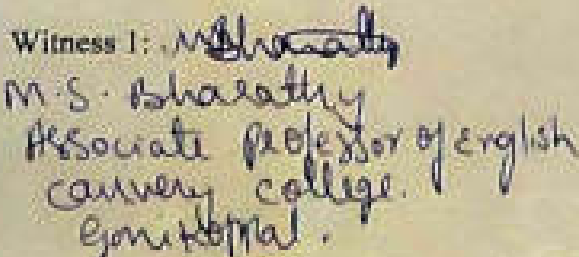 Witness 1: MSBharathy
M.S. Bharathy
Associate Professor of English
Cauvery College.
Gonikoppal.